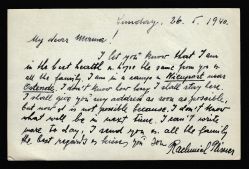 Sunday, 26. 5. 1940.
My dear Mamma!
I let you know that I am
in the best health a. hope the same from you a.
all the family. I am in a camp a. Nieuport near
Ostende. I don't know how long I shall stay here.
I shall give you my address as soon as possible,
but now it is not possible because I don't know
what will be in next time. I can't write
more to-day, I send you a. all the family
the best regards a. kisses your Son